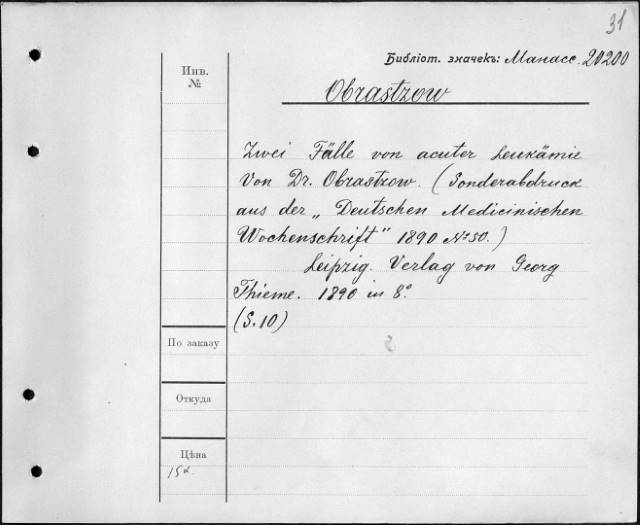 31
Библіот. значекъ: Манасс. 20200
Инв.
№
Obrastzow
Zwei Fälle von acuter Leukämie
Von Dr. Obrastzow. (Sonderabdruck
aus der „Deutschen Medicinischen
Wochenschrift" 1890 № 50.)
Leipzig. Verlag von Georg
Thieme. 1890 in 8°.
(S. 10)
По заказу
Откуда
Цѣна